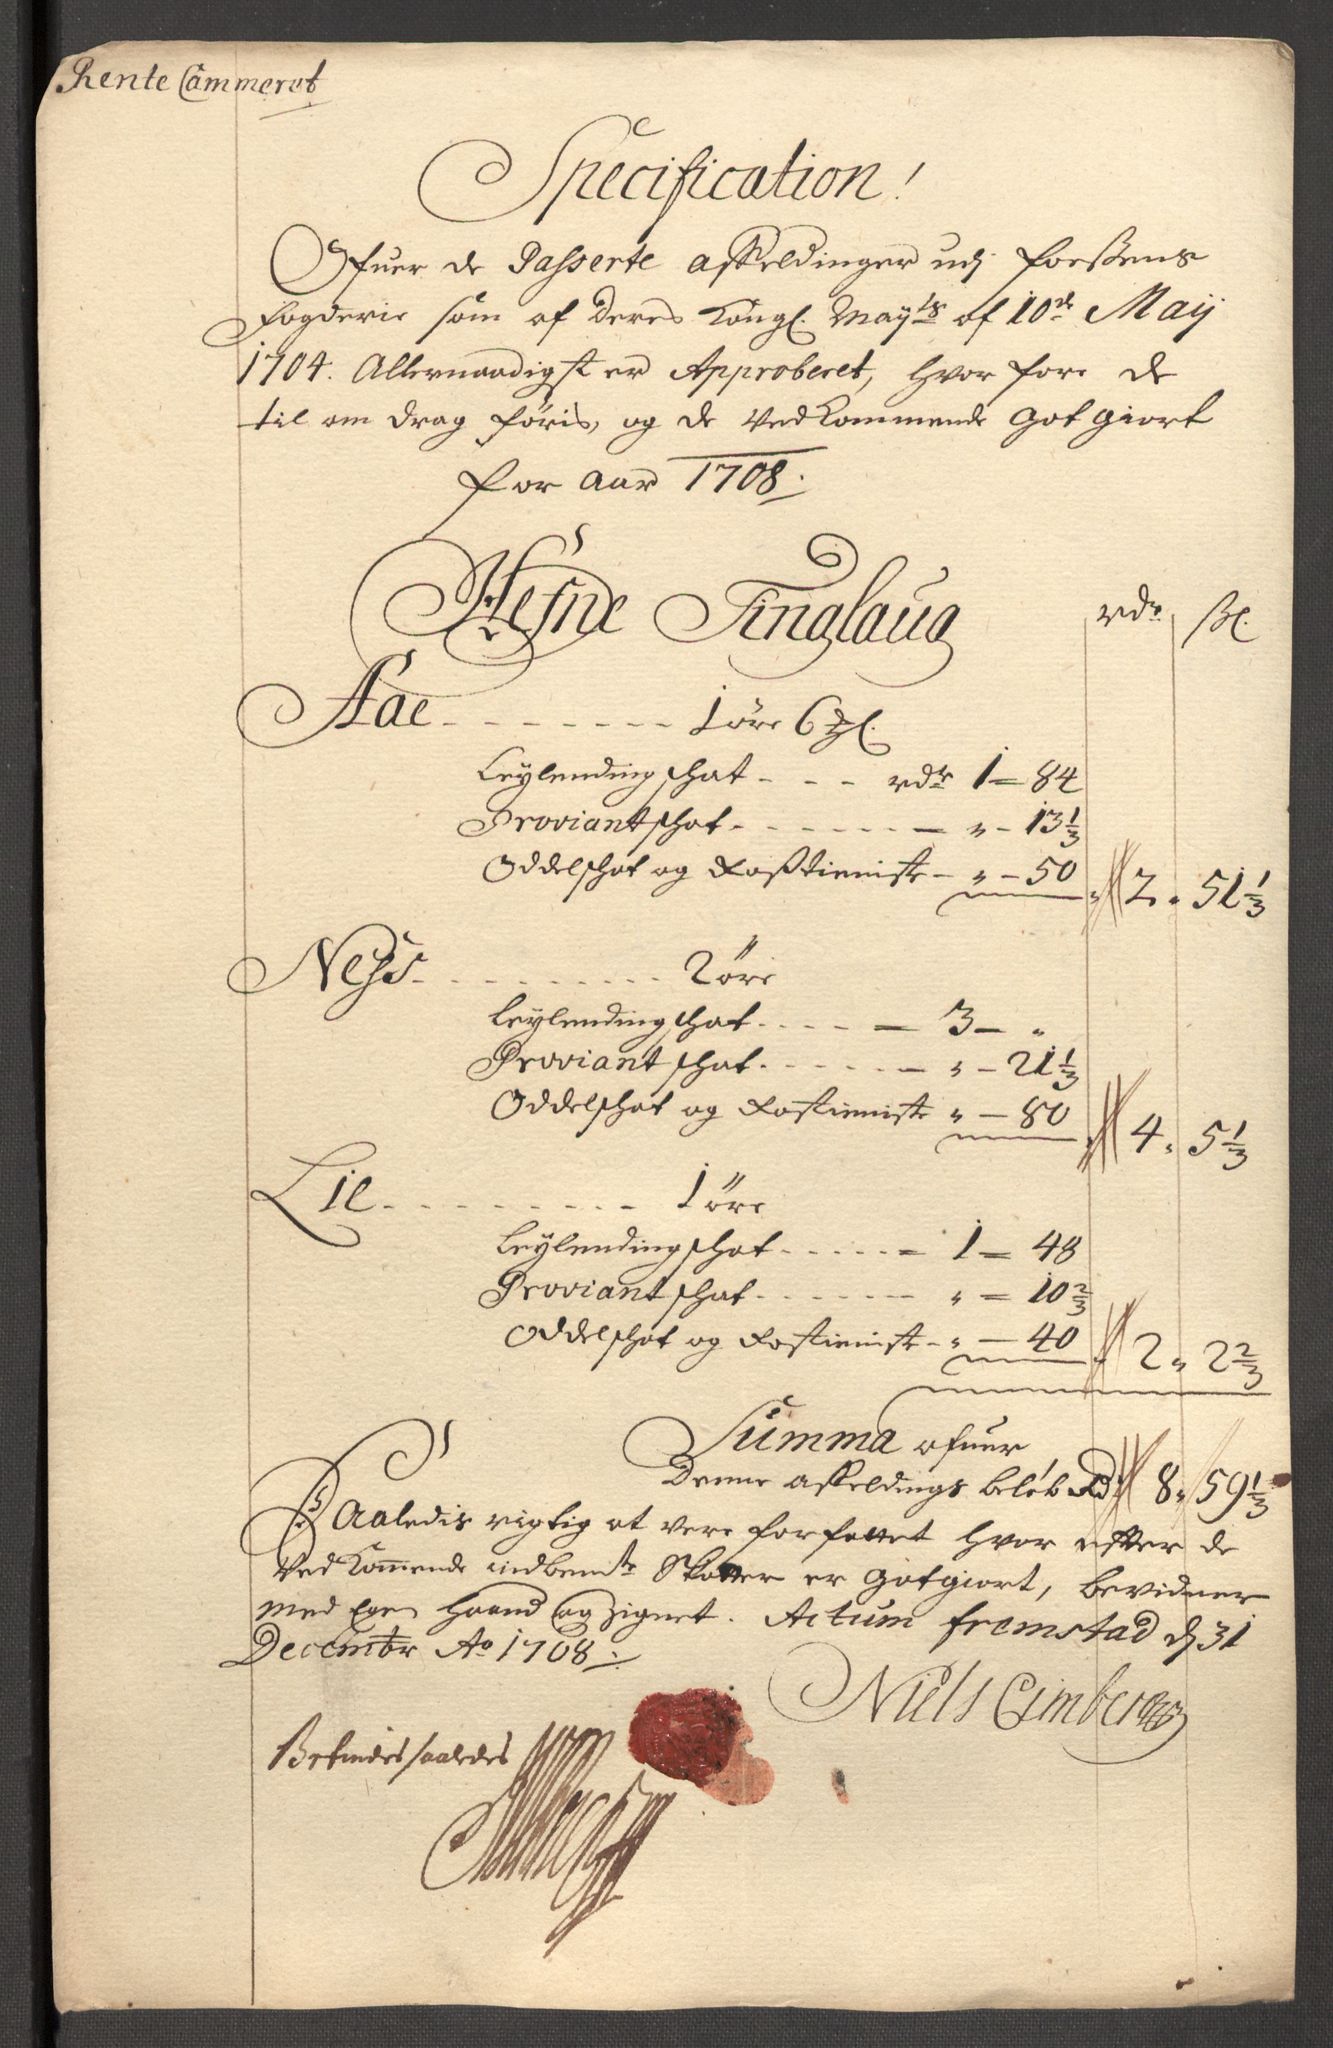 Rente Cammeret
Specification!
Ofuer de Passerte affeldinger udj Foessens
Fogderie som af Deres Kongl. Mayts af 10de Maij
1704. Allernaadigst er Approberet, hvor fore de
til om drag føris, og de Vedkommende got giort
for Aar 1708.
Hefne Tinglaug
rdr. sk.
Aae - - - - - - - 1 øre 6
Leylending schat - - - rdr 1 - 84
Proviant schat - - - - - - " - 13 1/3
Oddelschat og Rosstieniste - " - 50 2 " 51 1/3
Ness - - - - - - - - - 2 øre
Leylending schat - - - - 3 - "
Proviant schat - - - - - - " - 21 1/3
Oddelschat og Rostieniste " - 80 4 " 5 1/3
Lie - - - - - - - - - 1 øre
Leylending schat - - - - - 1 - 48
Proviant schat - - - - - - " - 10 2/3
Oddelschat og Rostieniste - " - 40 2 " 2 2/3
Summa ofuer
Denne affeldings beløb Rdr 8 " 59 1/3
Saaledis rigtig at vere forfattet hvor efter de
Ved Kommende indbemte Skatter er gotgiort, bevidner
med Egen Haand og Zignet. Actum Fremstad d 31
Decembr Ao 1708
Niels Cimberg
Befindes saaledes